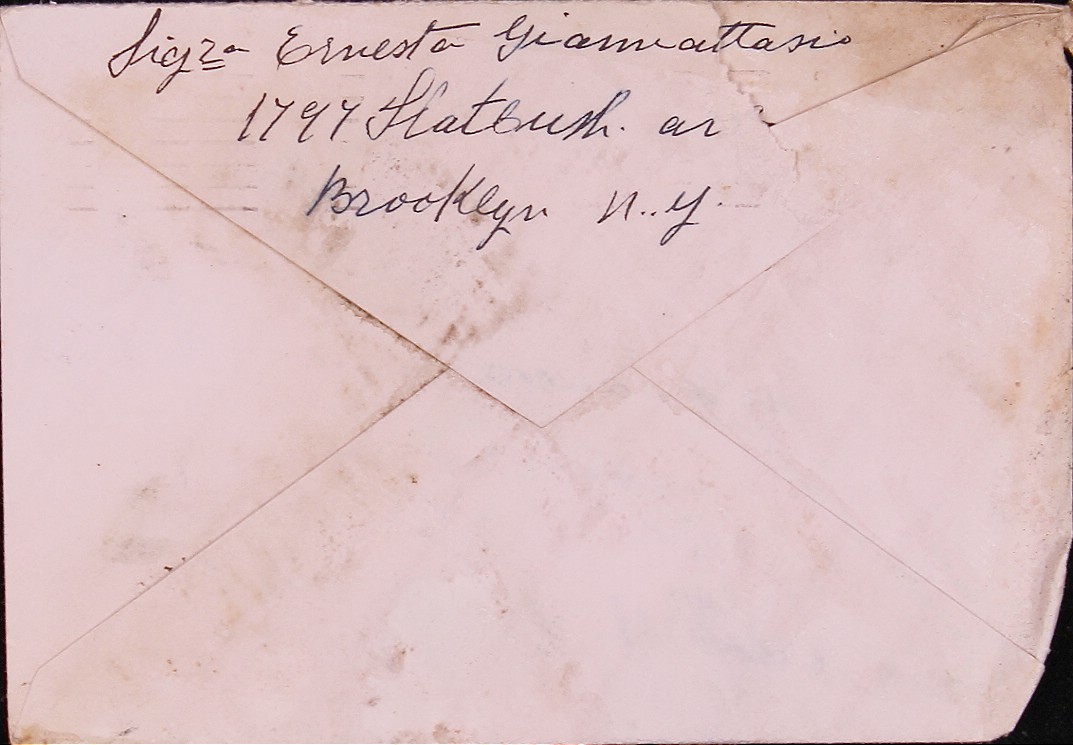 Sigra Ernesta Giannattasio
1797 Flatbush. av
Brooklyn N.Y.